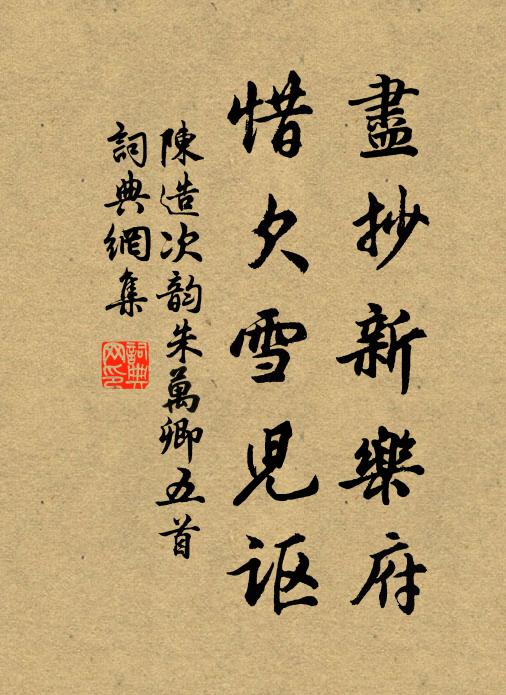 盡抄新樂府
惜欠雪兒讴
陳造次韵朱萬卿五首
詞典網集
詞典網印